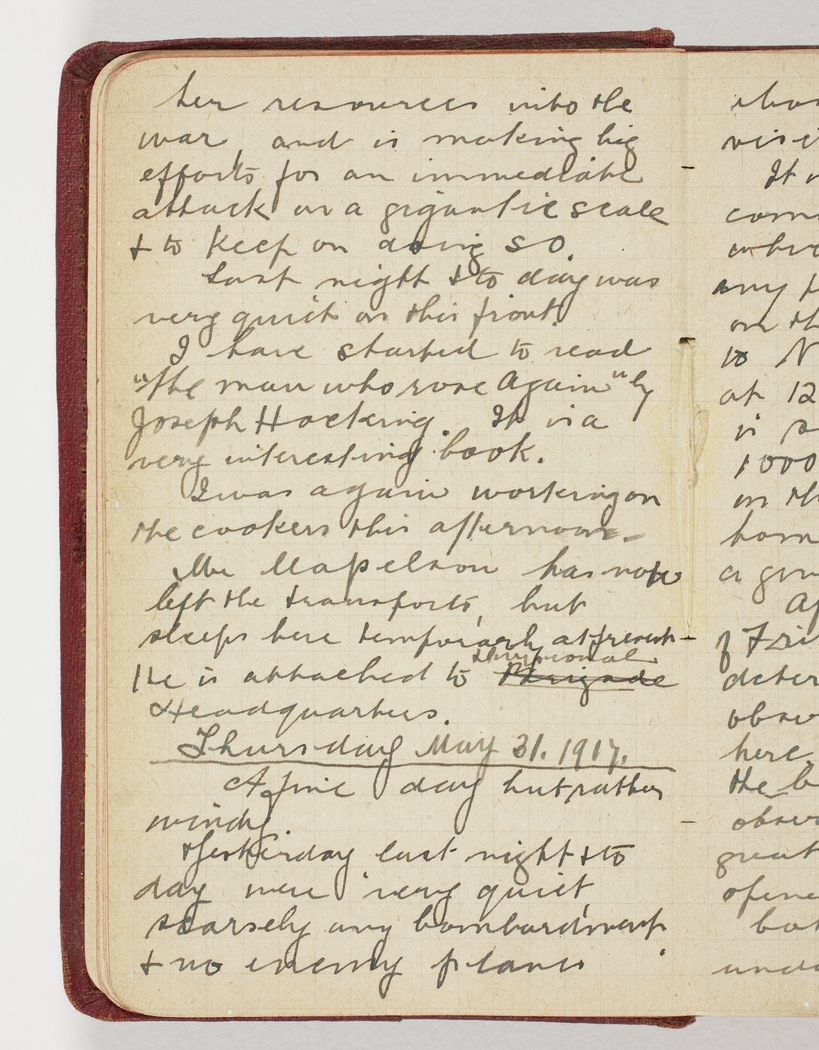 her resources into the
war, and is making big
efforts for an immediate
attack on a gigantic scale
& to keep on doing so.
Last night & to day was
very quiet on this front.
I have started to read
"The man who rose Again" by
Joseph Hocking. It is a
very interesting book.
I was again working on
the cookers this afternoon.
Mr Mapelson has now
left the transports, but
sleeps here temporarly at present
He is attached to Divisional Brigade
Headquarters.
Thursday May 31. 1917.
A fine day but rather
windy
Yesterday last night & to
day were very quiet,
scarsely any bombardment
& no enemy planes
visi
It
com
any
on th
to N
at 12
is
1000
in th
hom
of Fri
deter
obser
here.
He b
obser
great
opene